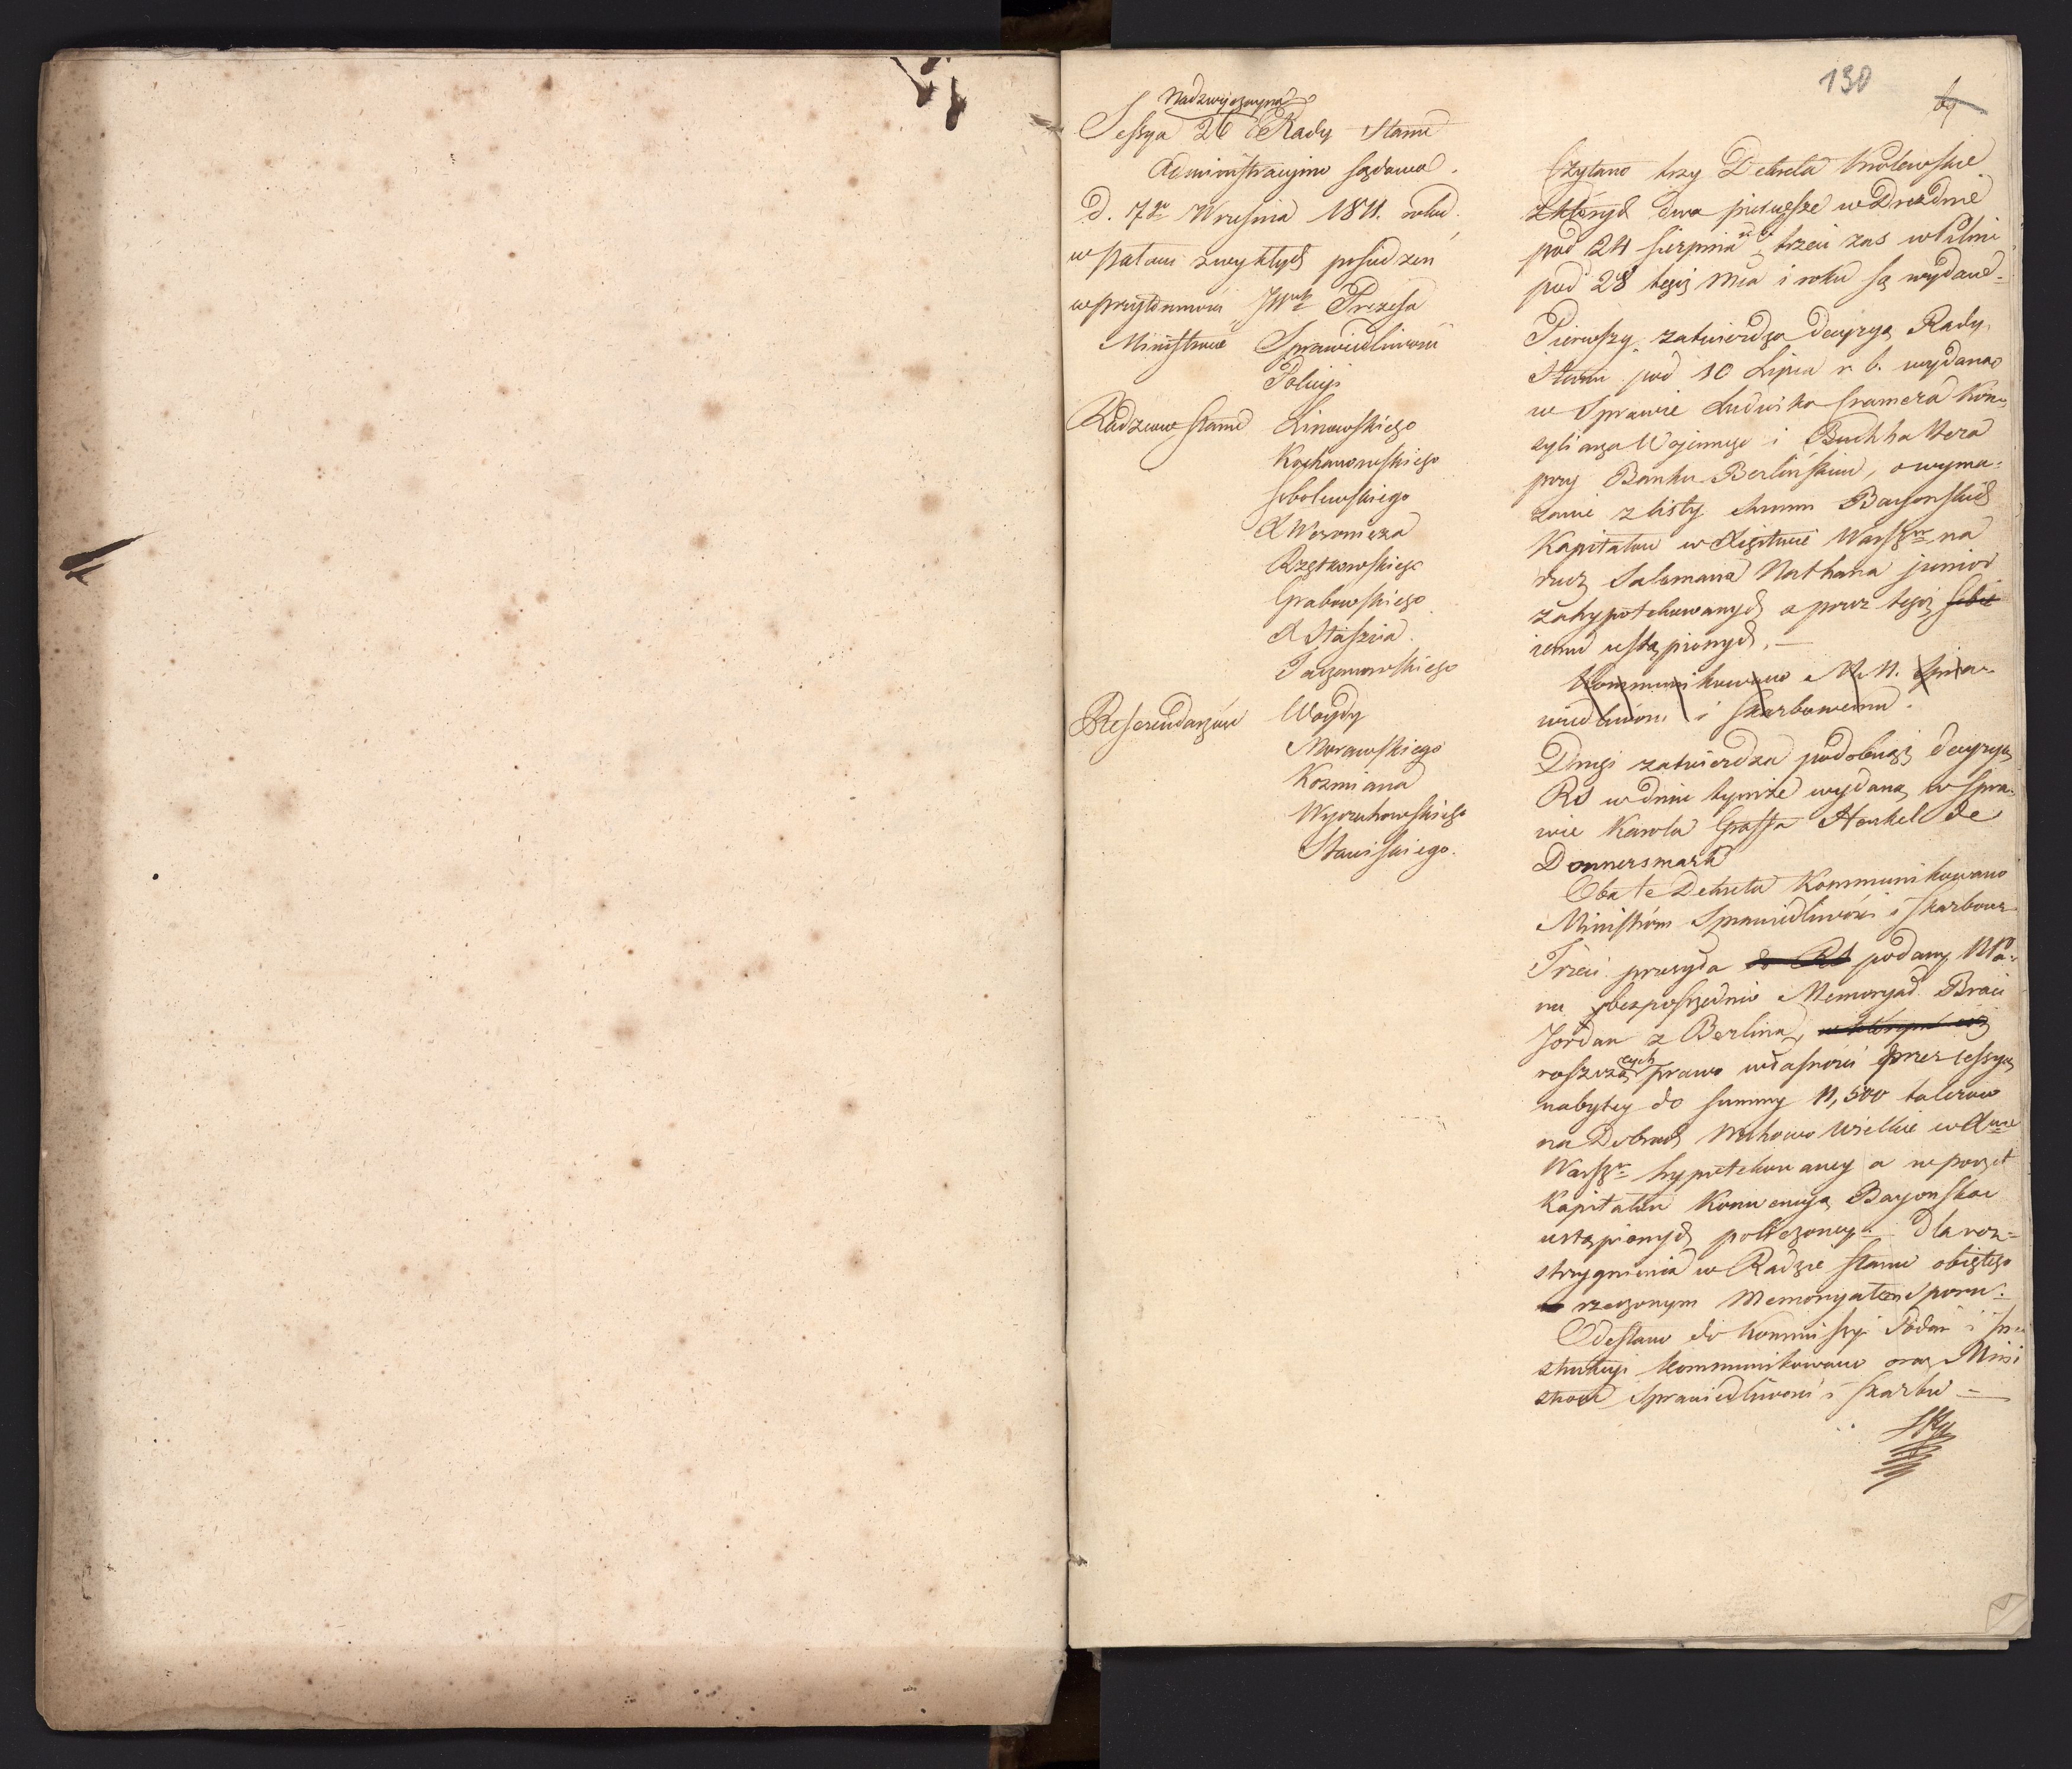 130
Nadzwyczayna
Sessya 26 Rady Stanu
Administracyjno sądowa.
d. 7 Września 1811. roku.
w Pałacu zwykłych posiedzeń
w przytomności JW Prezesa
Ministrów Sprawiedliwości
Policyi
Radzców Stanu Linowskiego
Kochanowskiego
Sobolewskiego
X Woronicza
Rzętkowskiego
Grabowskiego
X Staszica.
Taczanowskiego
Referendarzów Woydy
Morawskiego
Kozmiana
Wyczechowskiego
Stawiskiego.
Czytano trzy Dekreta Królewskie
z których dwa pierwsze w Dreźnie
pod 24 Sierpnia trzeci zaś w Pilnic
pod 28 tegoż Mca i roku są wydane.
Pierwszy zatwierdza decyzyą Rady
Stanu pod 10 Lipca r. b. wydaną
w Sprawie Ludwika Cramera Kon=
syliarza Woiennego i Buchhaltera
przy Banku Berlińskim, o wyma=
zanie z listy summ Bayońskich
Kapitałów w Xięstwie Warszw na
rzecz Salamana Nathana junior
zahypotekowanych a przez tegoż sobie
iemu ustąpionych. —
Kommunikowano M. M. Spra=
wiedliwości i Skarbowemu.
Drugi zatwierdza podobnąż decyzyą
RS w dniu tymże wydaną w Spra=
wie Karola Graffa Henkel de
Donnersmark
Oba te Dekreta Kommunikowano
Ministrom Sprawiedliwości i Skarbowe
Trzeci przesyła do RS podany NPa=
nu bezpośrednio Memoryał Braci
Jordan z Berlina,
roszczących prawo własności przez cessyą
nabytey do summy 11,500 talerów
na Dobrach Wielkie w Xwie
Warszw hypotekowaney a w poczet
Kapitałów Konwencyą Bayońską
ustąpionych policzoney dla roz=
strzygnienia w Radzie Stanu obiętego
rzeczonym Memoryałem Sporu.
Odesłano do Kommissyi Podań i In
strukcyi Kommunikowano oraz Mini
strom Sprawiedliwości i Skarbu —